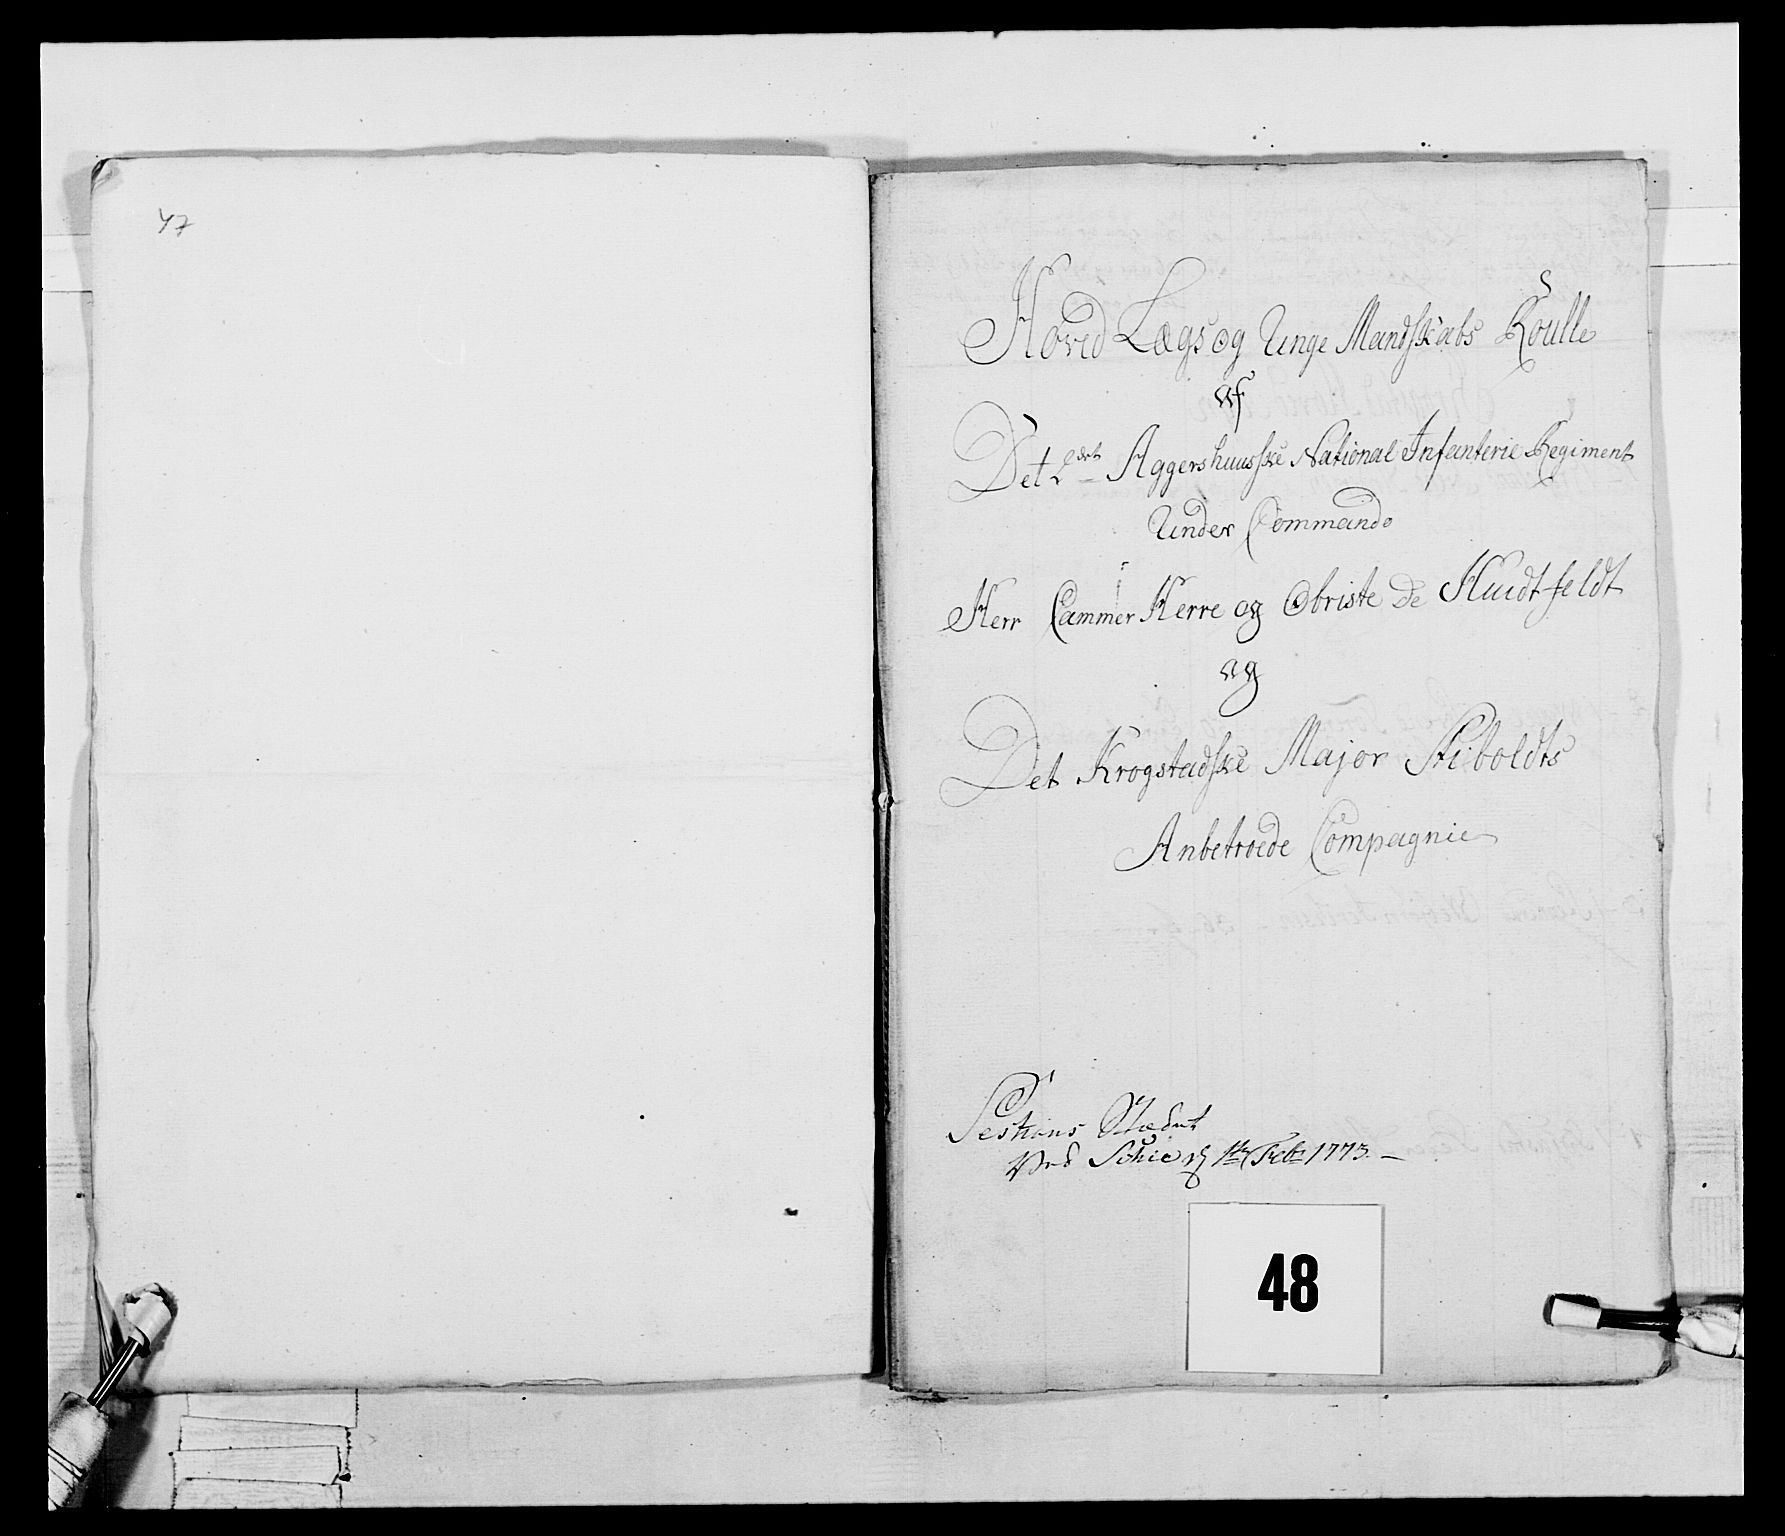 47
Hoved Lægs og Unge Mandskabs Roulle
af
Det 2det Aggershuusske National Infanterie Regiment
Under Commando
Herr Cammer Herre og Obriste De Huidtfeldt
og
Det Krogstadske Major Stiboldts
Anbetroede Compagnie
Sestions Stædet
Ved Schie d 1te Feb 1773.
48